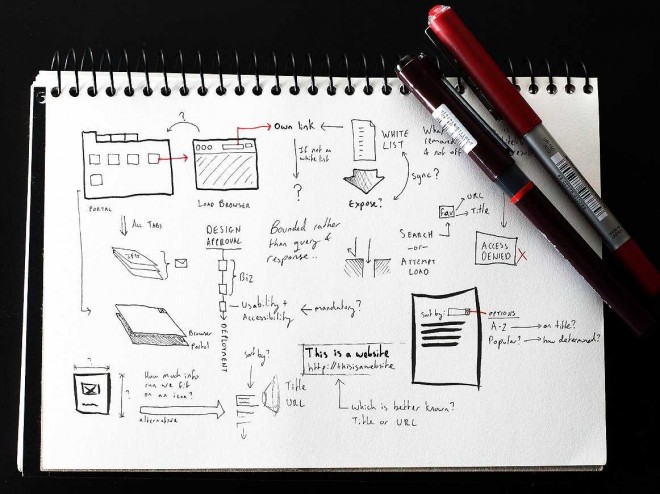 ?
Own link
WHITE
LIST
If not on
white list
?
Sync?
Expose?
PORTAL
LOAD BROWSER
ALL TABS
DESIGN
APPROVAL
Bounded rather
than query &
response..
Biz
Usability +
Accessibility
mandatory?
DEPLOYMENT
Browser
Portal
Fav
URL
Title
SEARCH
-or-
ATTEMPT
LOAD
ACCESS
DENIED
X
Sort by:
OPTIONS
A-Z on title?
Popular? how determined?
?
?
How much info
can we fit
on an icon?
alternative
Sort by?
Title
URL
This is a website
http://thisisawebsite
Which is better known?
Title or URL